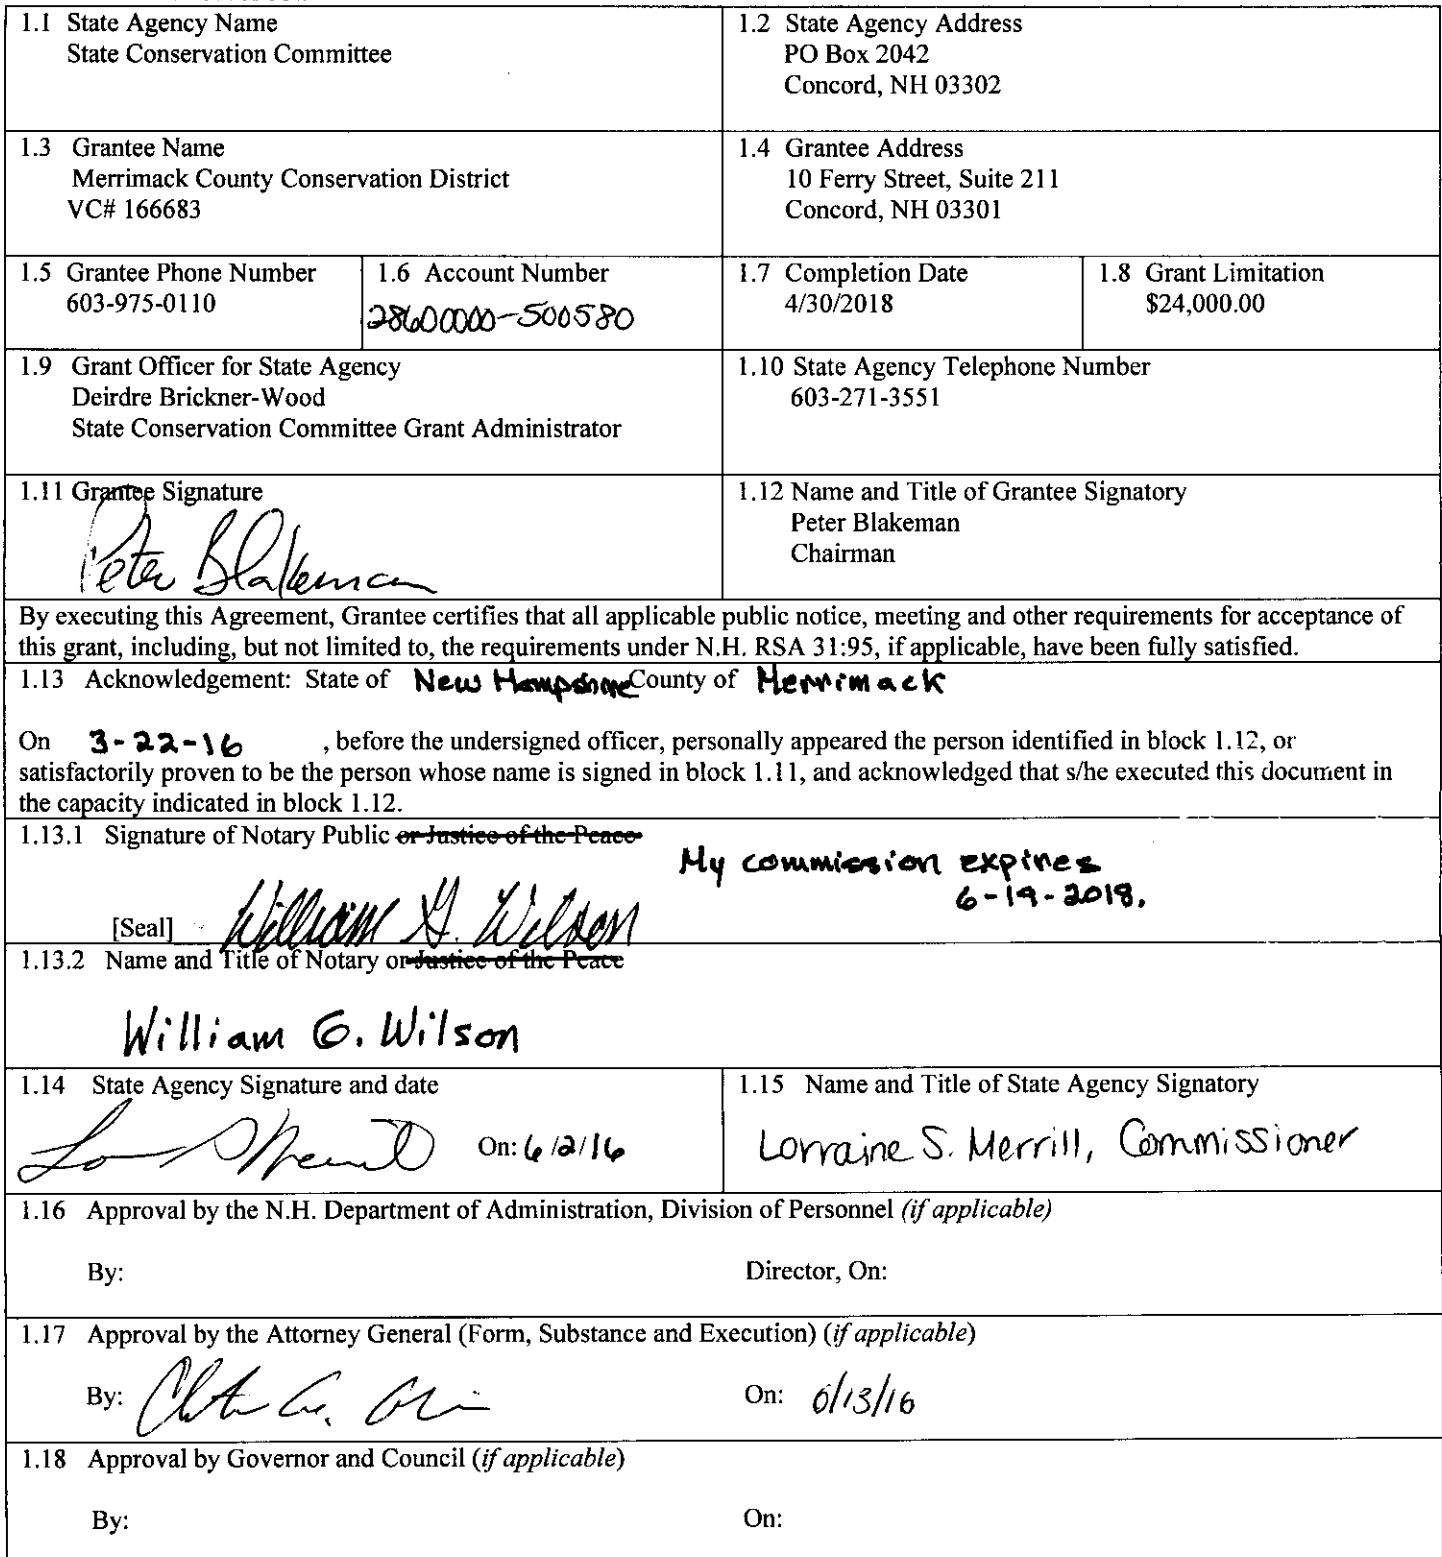 1.1 State Agency Name
State Conservation Committee
1.2 State Agency Address
PO Box 2042
Concord, NH 03302
1.3 Grantee Name
Merrimack County Conservation District
VC# 166683
1.4 Grantee Address
10 Ferry Street, Suite 211
Concord, NH 03301
1.5 Grantee Phone Number
603-975-0110
1.6 Account Number
28600000-500580
1.7 Completion Date
4/30/2018
1.8 Grant Limitation
$24,000.00
1.9 Grant Officer for State Agency
Deirdre Brickner-Wood
State Conservation Committee Grant Administrator
1.10 State Agency Telephone Number
603-271-3551
1.11 Grantee Signature
Peter Blakeman
1.12 Name and Title of Grantee Signatory
Peter Blakeman
Chairman
By executing this Agreement, Grantee certifies that all applicable public notice, meeting and other requirements for acceptance of
this grant, including, but not limited to, the requirements under N.H. RSA 31:95, if applicable, have been fully satisfied.
1.13 Acknowledgement: State of New Hampshire County of Merrimack
On 3-22-16 , before the undersigned officer, personally appeared the person identified in block 1.12, or
satisfactorily proven to be the person whose name is signed in block 1.11, and acknowledged that s/he executed this document in
the capacity indicated in block 1.12.
1.13.1 Signature of Notary Public or Justice of the Peace
My commission expires
6-19-2018.
[Seal] William G. Wilson
1.13.2 Name and Title of Notary or Justice of the Peace
William G. Wilson
1.14 State Agency Signature and date
On: 6/2/16
1.15 Name and Title of State Agency Signatory
Lorraine S. Merrill, Commissioner
1.16 Approval by the N.H. Department of Administration, Division of Personnel (if applicable)
By: Director, On:
1.17 Approval by the Attorney General (Form, Substance and Execution) (if applicable)
By: On: 6/13/16
1.18 Approval by Governor and Council (if applicable)
By: On: